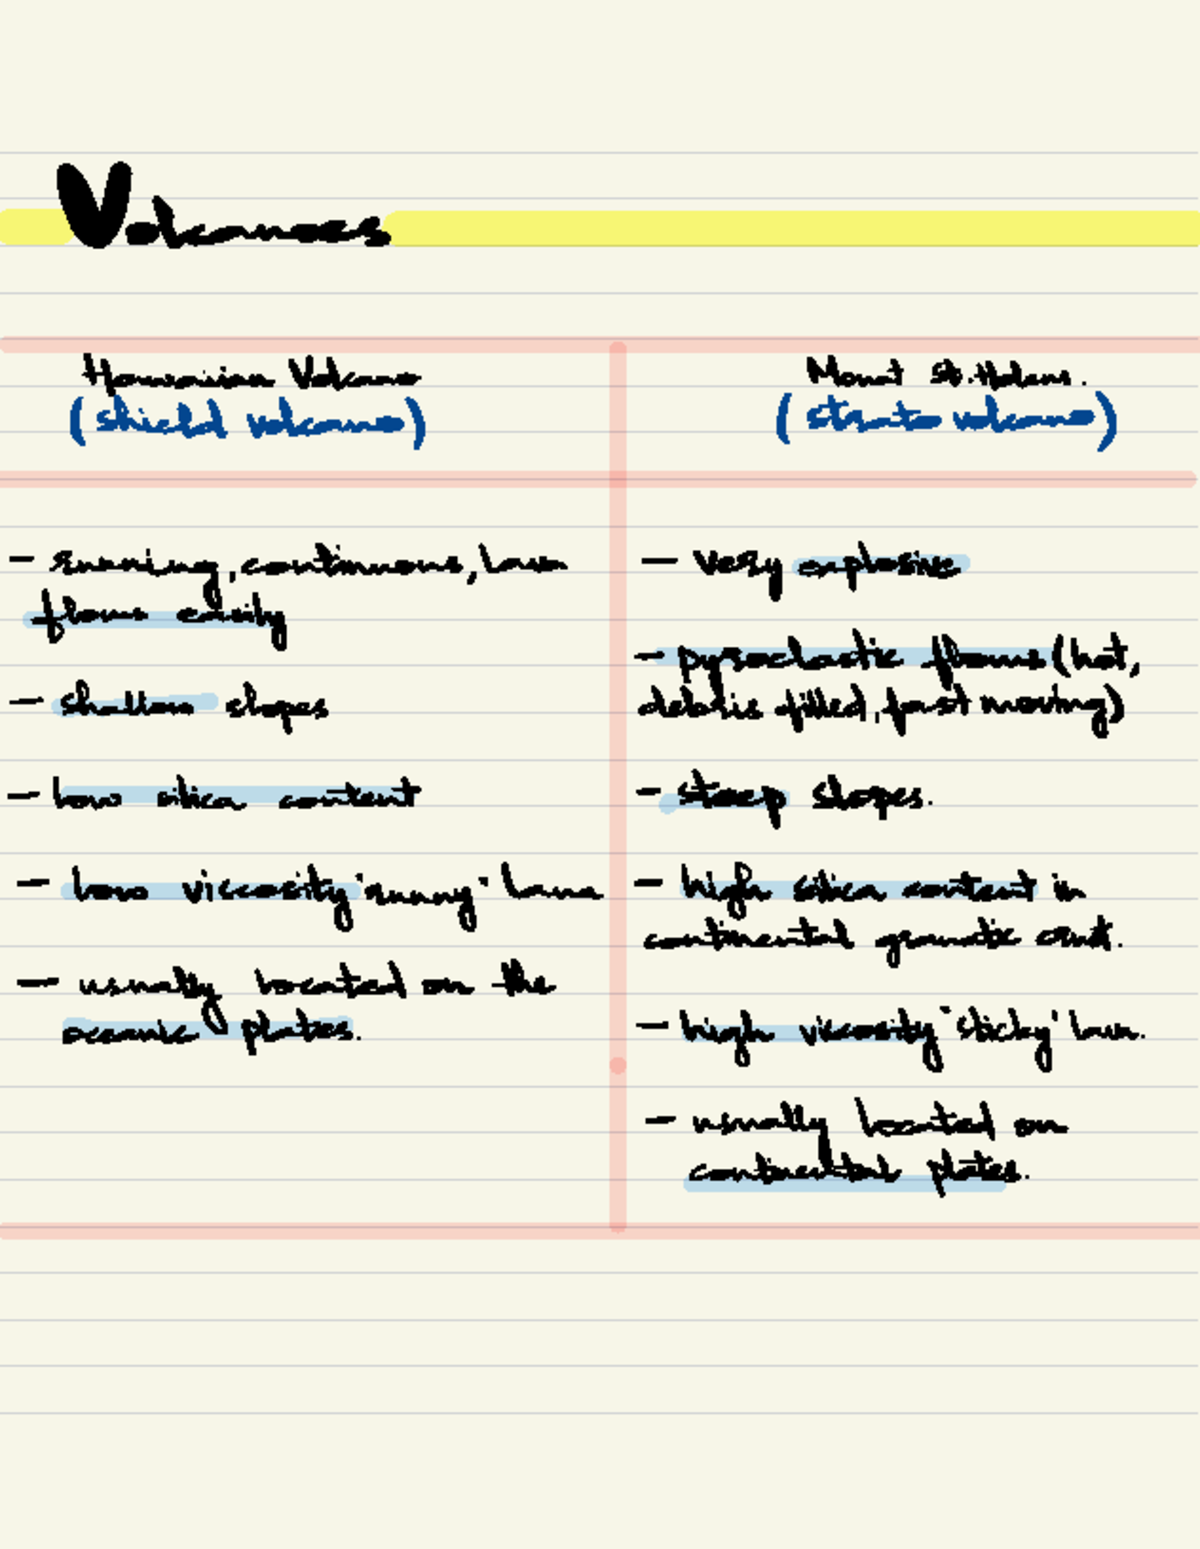 Volcanoes
Hawaiian Volcano
(shield volcano)
- running, continuous, lava
flows easily
- shallow slopes
- low silica content
- low viscosity "runny" lava
- usually located on the
oceanic plates.
Mount St. Helens.
(strato volcano)
- very explosive
- pyroclastic flows (hot,
debris filled, fast moving)
- steep slopes.
- high silica content in
continental granatic crust.
- high viscosity "sticky" lava.
- usually located on
continental plates.